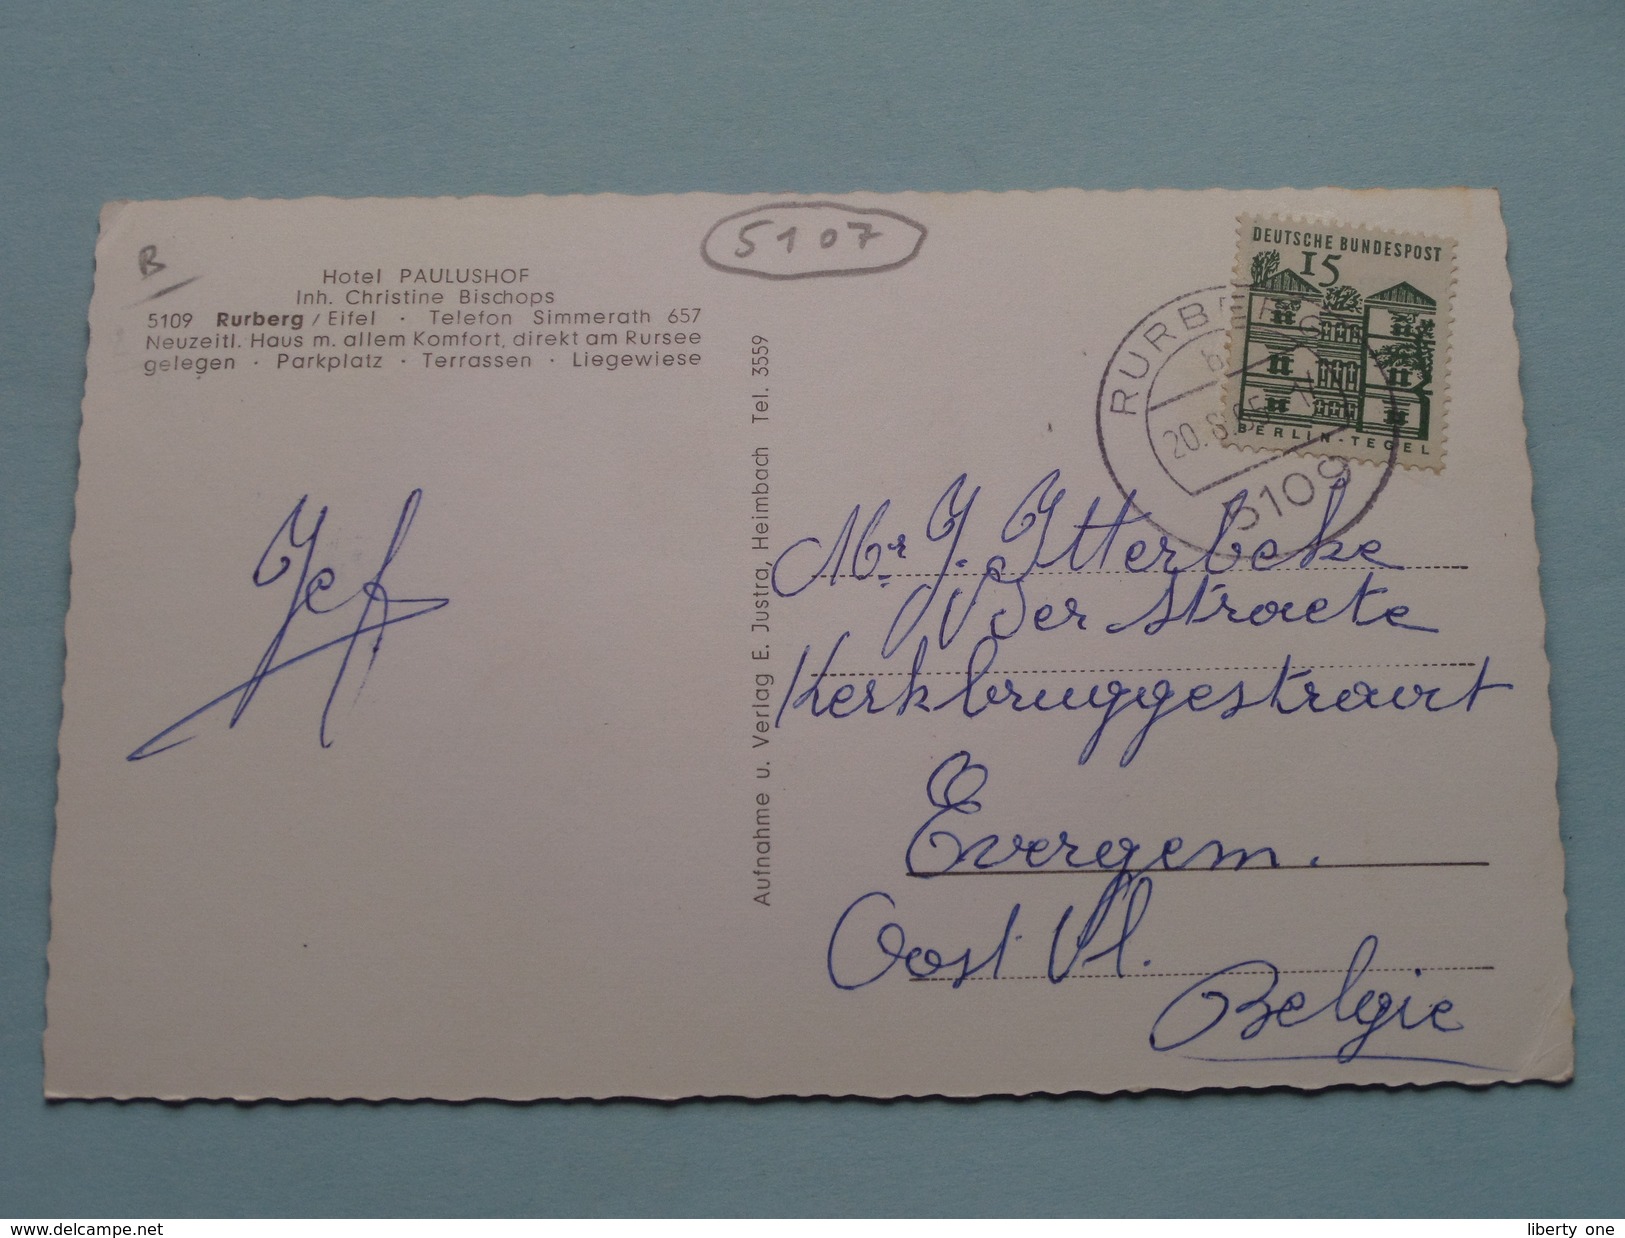 B
5107
Hotel PAULUSHOF
Inh. Christine Bischops
5109 Rurberg / Eifel · Telefon Simmerath 657
Neuzeitl. Haus m. allem Komfort, direkt am Rursee
gelegen · Parkplatz · Terrassen · Liegewiese
Jef
Aufnahme u. Verlag E. Justra, Heimbach Tel. 3559
DEUTSCHE BUNDESPOST
15
BERLIN-TEGEL
RURBERG
20.8.65
5109
Mr J. Itterbeke
Der Straete
Kerkbruggestraat
Evergem.
Oost Vl.
Belgie
www.delcampe.net
liberty one